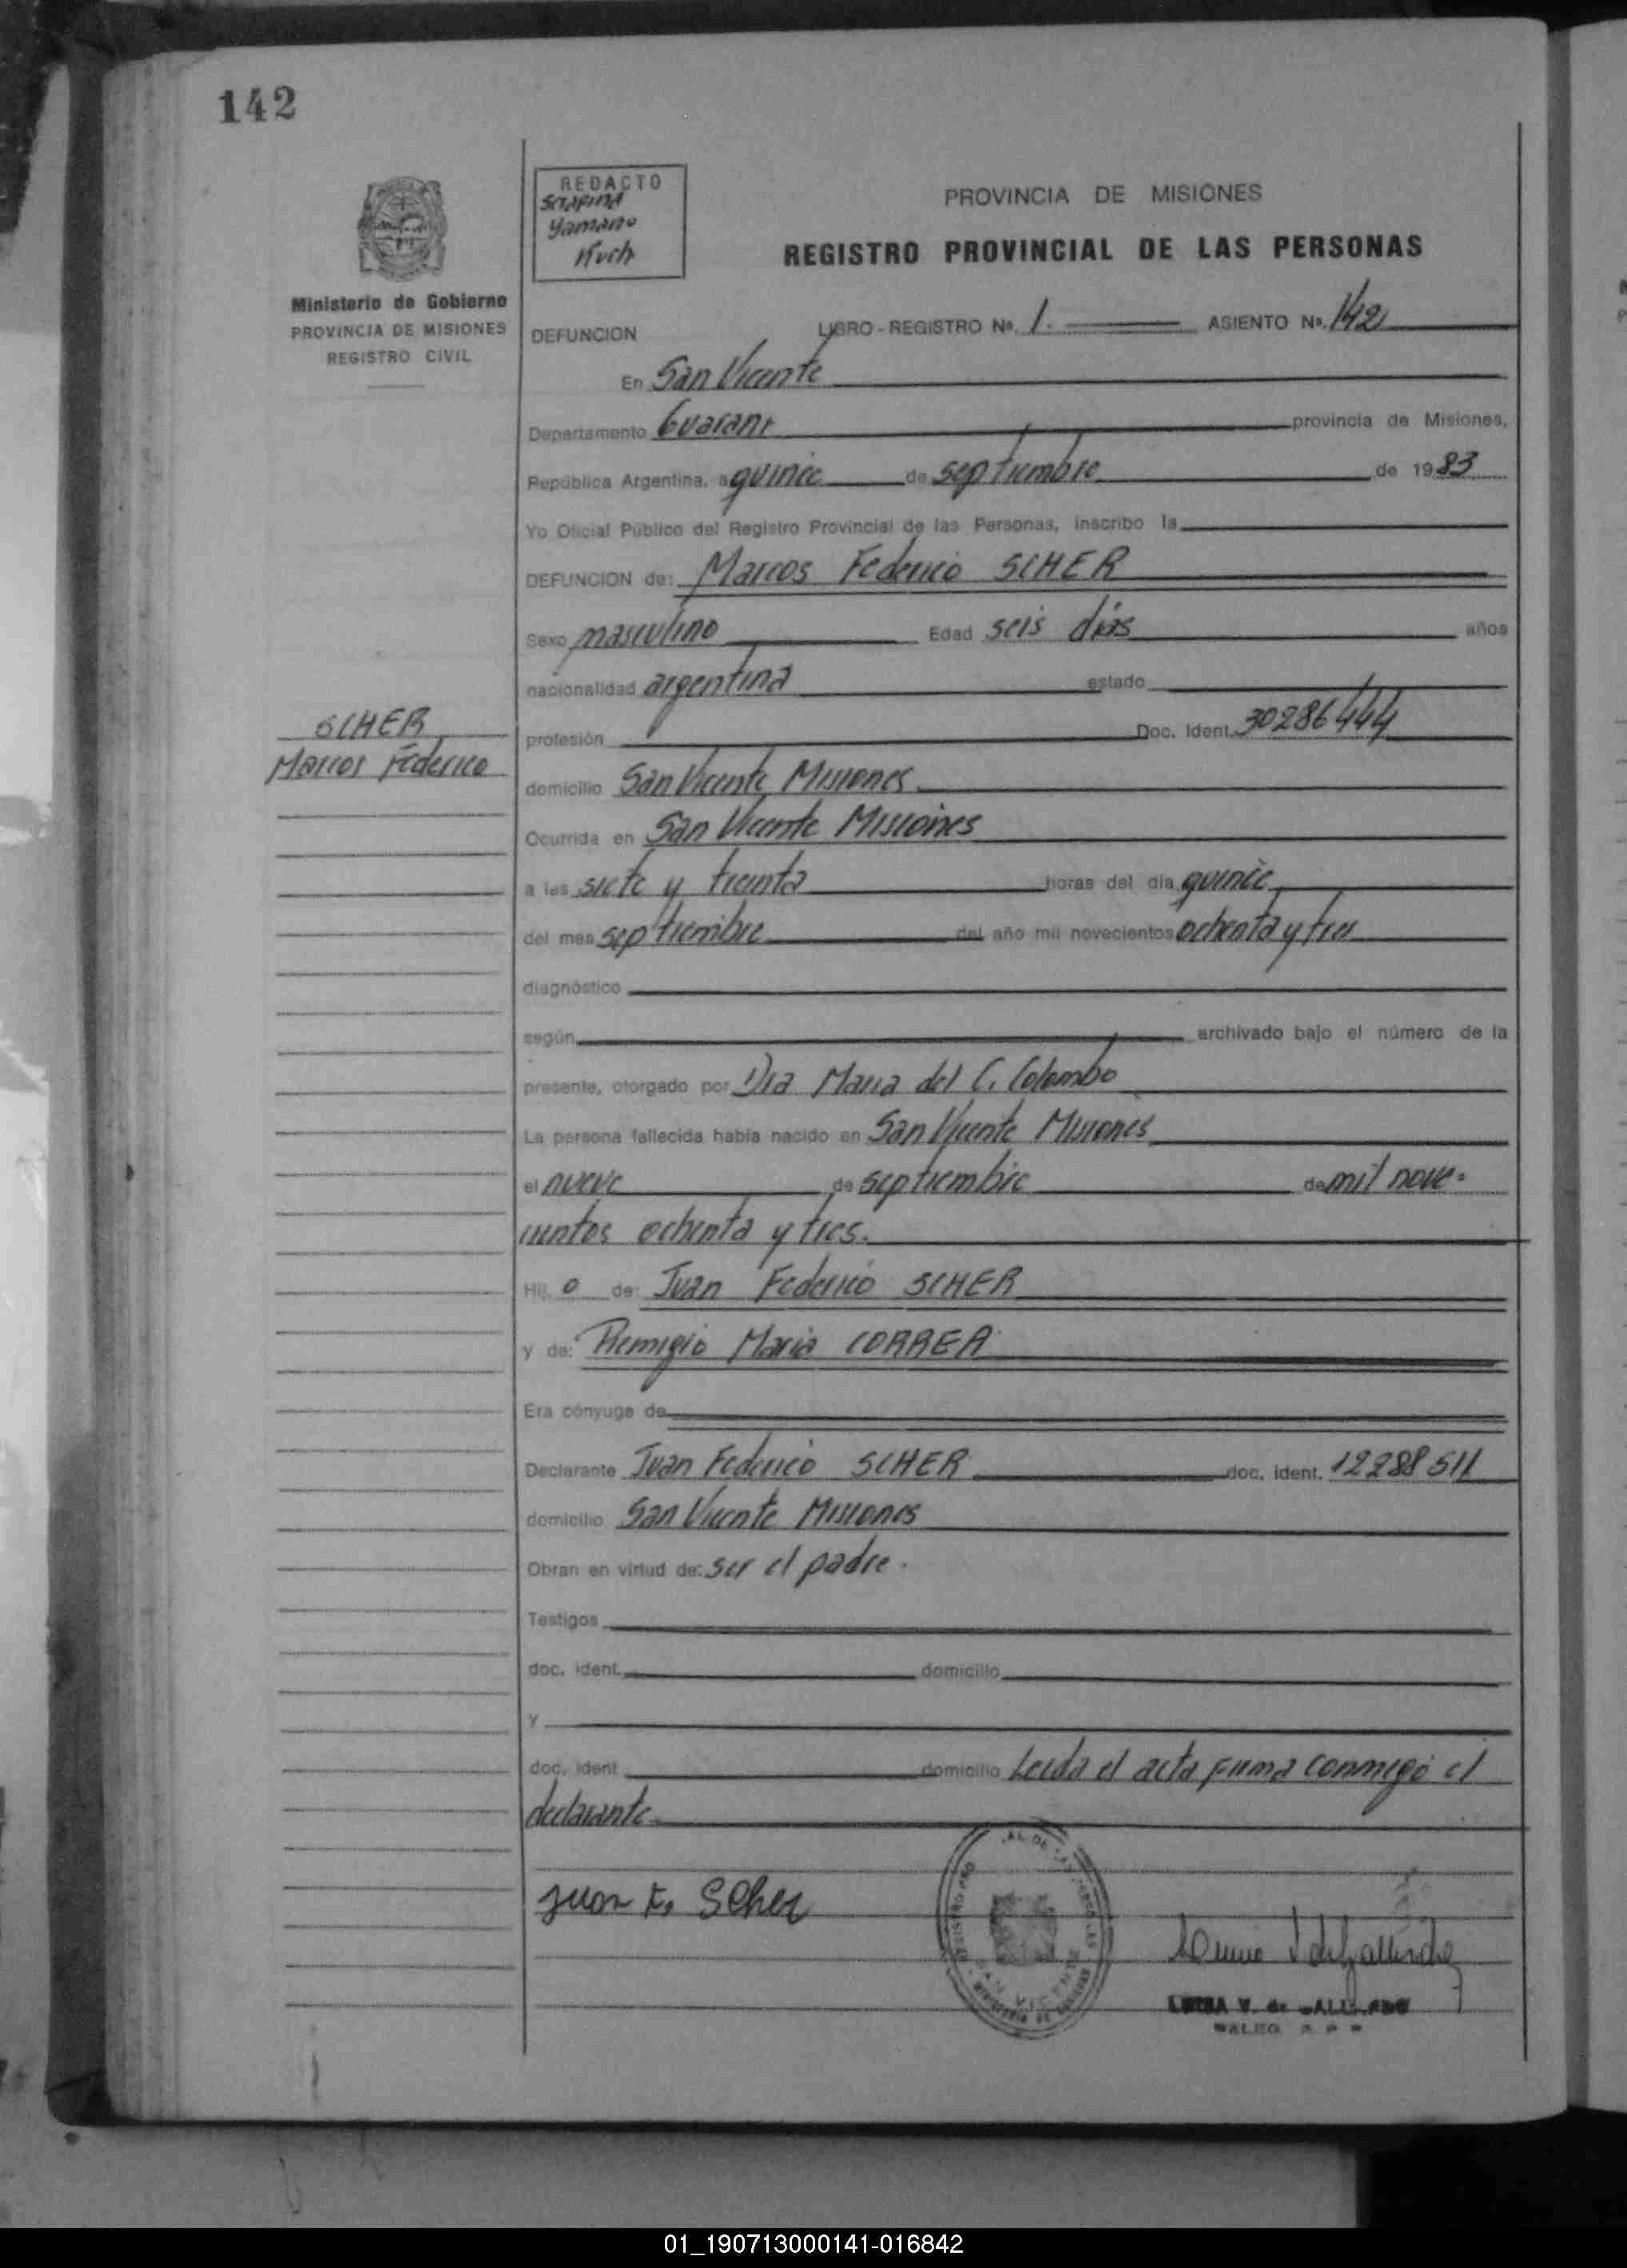 142
REDACTO
Serafina
Yamano
Kuch
PROVINCIA DE MISIONES
REGISTRO PROVINCIAL DE LAS PERSONAS
Ministerio de Gobierno
PROVINCIA DE MISIONES
REGISTRO CIVIL
DEFUNCION LIBRO - REGISTRO Nº. 1. ASIENTO Nº. 142
En San Vicente
Departamento Guarani provincia de Misiones,
República Argentina, a quince de septiembre de 1983
Yo Oficial Público del Registro Provincial de las Personas, inscribo la
DEFUNCION de: Marcos Federico SCHER
Sexo masculino Edad seis días años
nacionalidad argentina estado
SCHER
Marcos Federico
profesión Doc. Ident. 30286444
domicilio San Vicente Misiones
Ocurrida en San Vicente Misiones
a las siete y treinta horas del día quince
del mes septiembre del año mil novecientos ochenta y tres
diagnóstico
según archivado bajo el número de la
presente, otorgado por Dra Maria del C. Colombo
La persona fallecida había nacido en San Vicente Misiones
el nueve de septiembre de mil nove-
cientos ochenta y tres.
Hij. o de: Juan Federico SCHER
y de: Remigio Maria CORREA
Era cónyuge de
Declarante Juan Federico SCHER doc. ident. 12288511
domicilio San Vicente Misiones
Obran en virtud de: ser el padre.
Testigos
doc. ident. domicilio
y
doc. ident domicilio Leida el acta firma conmigo el
declarante
Juan F. Scher
SAN VICENTE
01_190713000141-016842